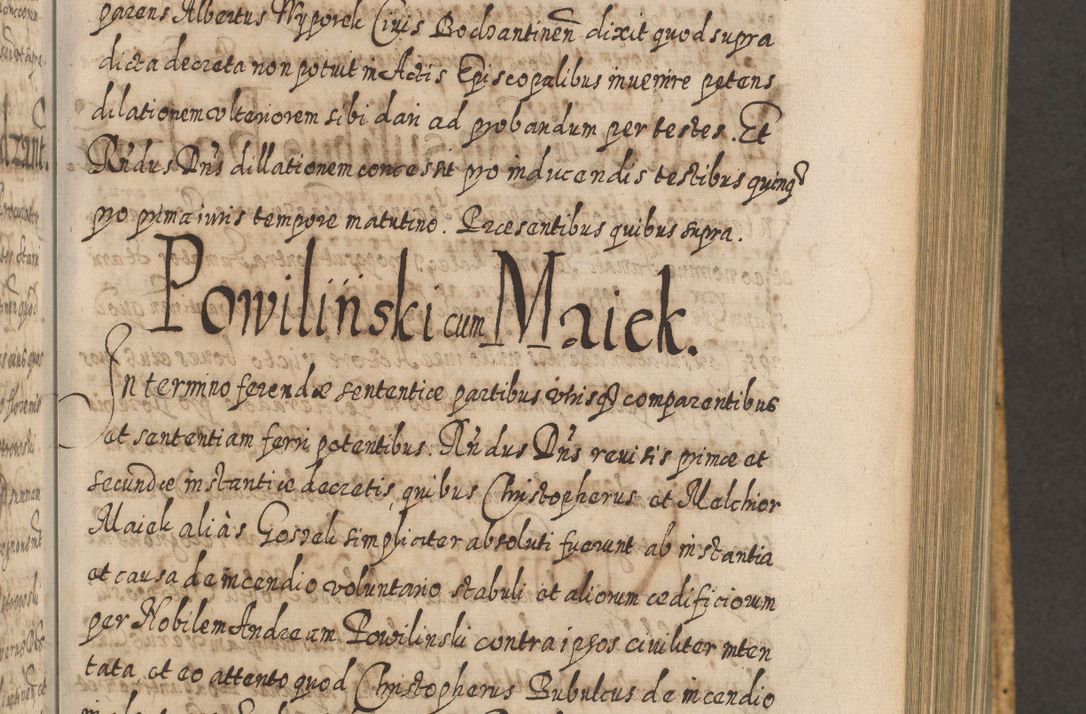 parens Albertus Wyporek Civis Bochantinen dixit quod supra
dicta decreta non potuit in Actis Episcopalibus invenire petens
dilationem ulteriorem sibi dari ad probandum per testes. Et
Rńdus Dńs dillationem concessit pro inducendis testibus quinq3
pro prima iuris tempore matutino. Præsentibus quibus supra.
Powiliński cum Maiek.
In termino ferendæ sententiæ partibus utrisq3 comparentibus
et sententiam ferri petentibus. Rńdus Dńs revisis primæ et
secundæ instantiæ decretis, quibus Christopherus et Melchior
Maiek aliàs Gospeli simpliciter absoluti fuerunt ab instantia
et causa de incendio voluntario stabuli et aliorum ædificiorum
per Nobilem Andream Powilinski contra ipsos civiliter inten
tata, et eo attento quod Christopherus Bubulcus de incendio